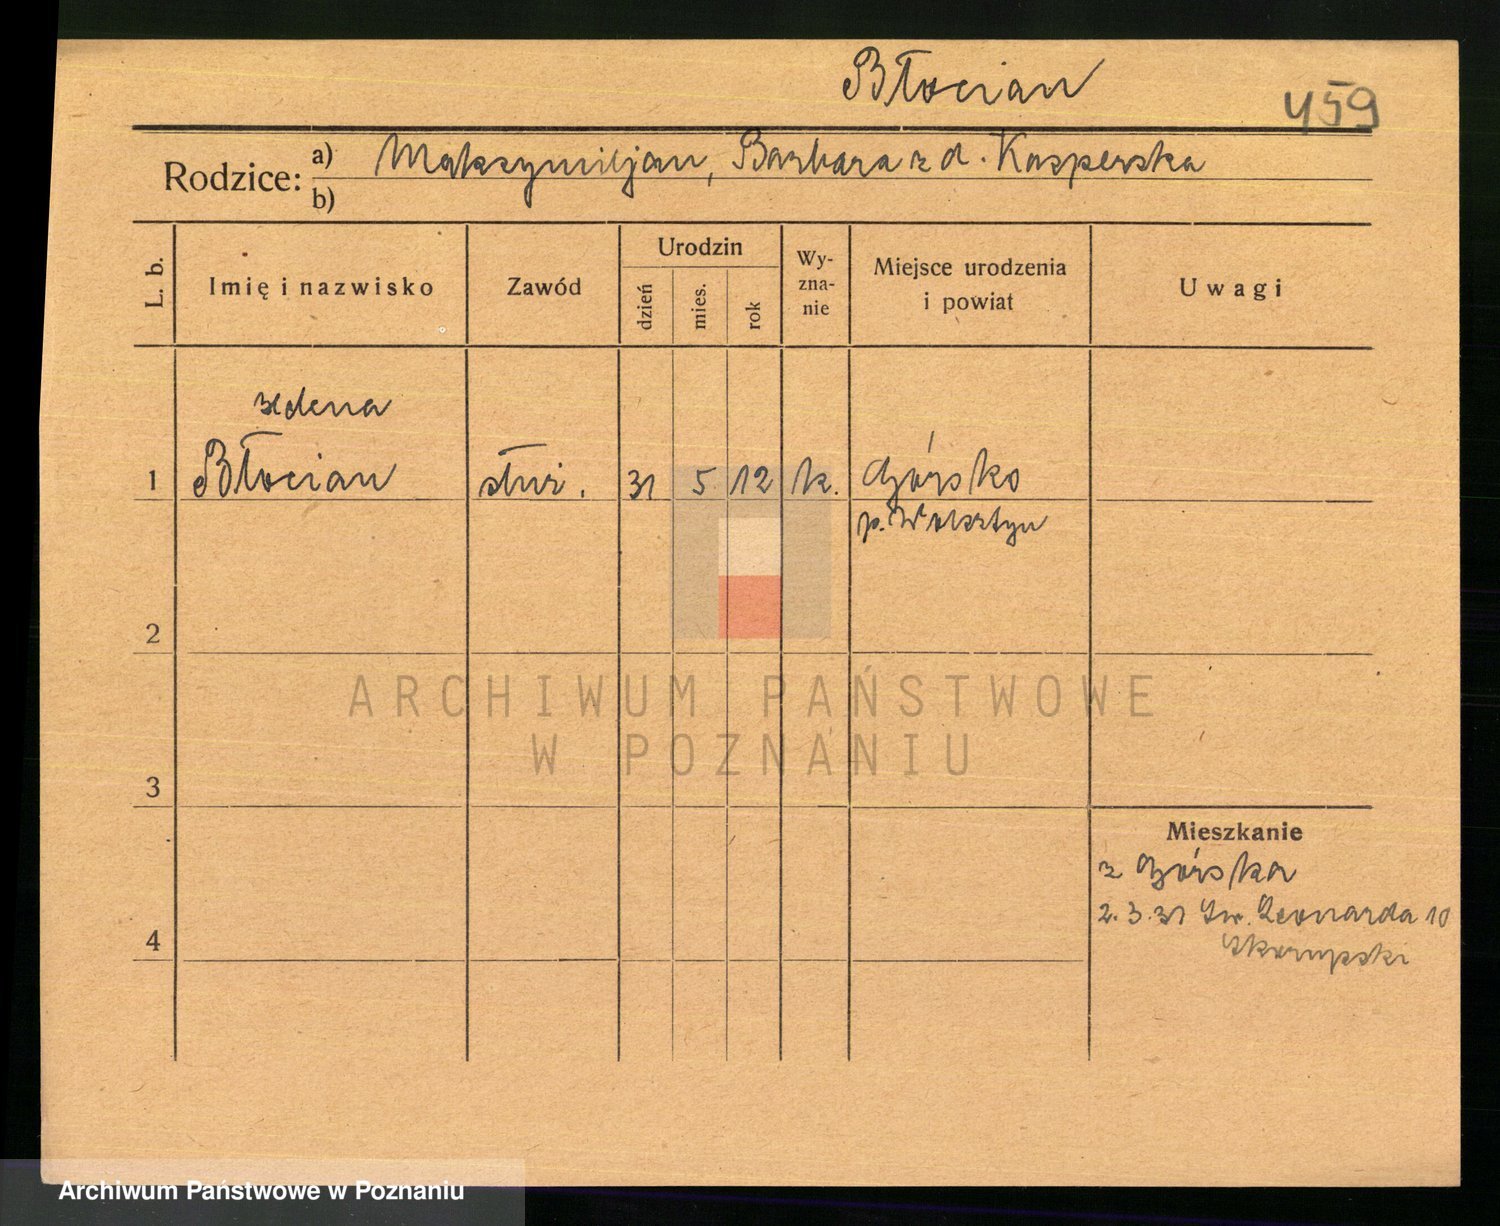 Błocian
459
Rodzice:
a) Maksymiljan, Barbara z d. Kasperska
b)
L. b.
Imię i nazwisko
Zawód
Urodzin
dzień
mies.
rok
Wy-
zna-
nie
Miejsce urodzenia
i powiat
Uwagi
1
Błocian
służ.
31
5
12
k.
Górsko
p. Wolsztyn
2
3
4
Mieszkanie
z Górska
2.3.31 Św. Leonarda 10
Skorupski
ARCHIWUM PAŃSTWOWE
W POZNANIU
Archiwum Państwowe w Poznaniu